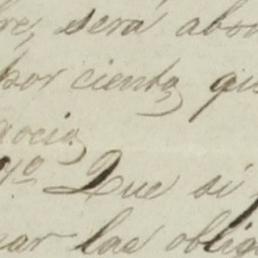 re, será abo
por ciento, qu
gocio,
7º Que si
ar las oblig